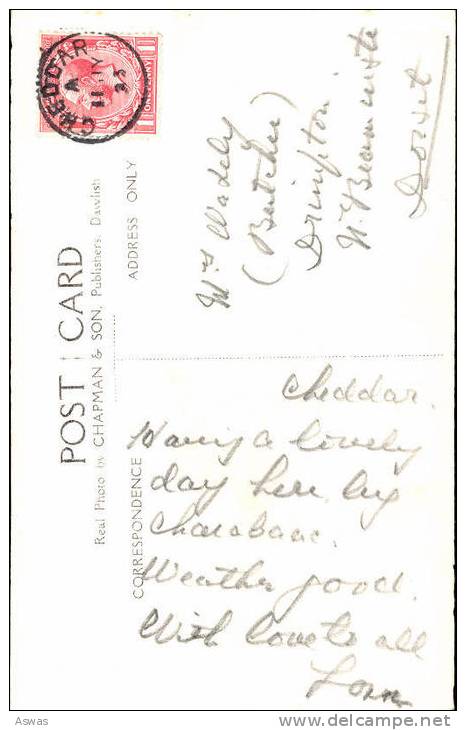 POST CARD
Real Photo by CHAPMAN & SON, Publishers, Dawlish
CORRESPONDENCE
ADDRESS ONLY
CHEDDAR
A
11 JY
33
Cheddar.
Having a lovely
day here by
Charabanc.
Weather good.
With love to all
Mrs Wakely
(Butcher)
Drimpton
Nr Beaminster
Dorset
Aswas
www.delcampe.net